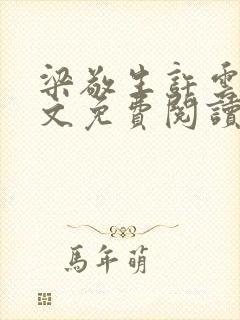 梁敬生許雲
文免費閱讀
馬年萌